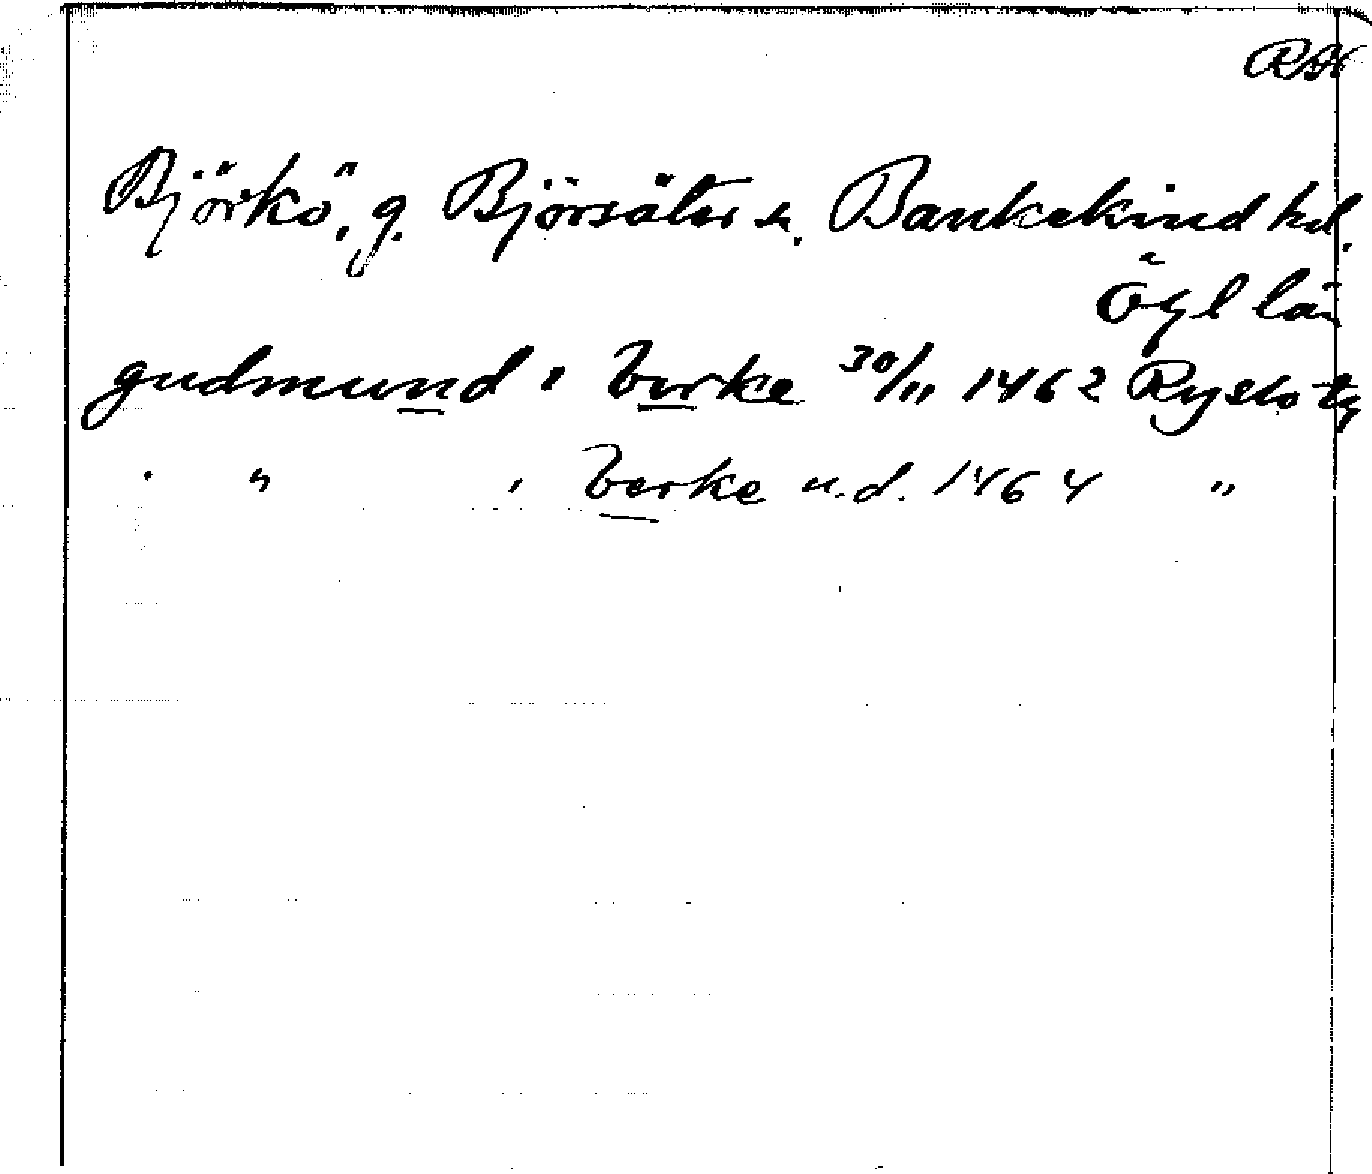 Björkö, g. Björsäter sn. Bankekind hd.
Ögl län
gudmund i birke 30/11 1462
" " i berke u.d. 1464 "